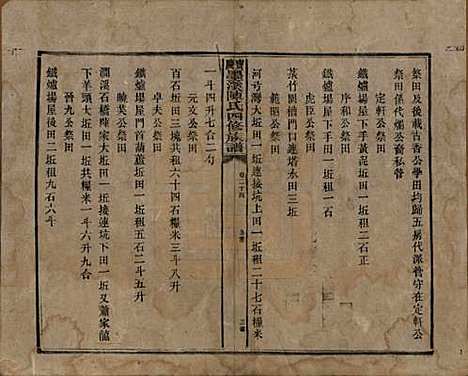 祭田及後載古香公學田均歸五房代派管守在定軒公
祭田係代爛公裔私管
定軒公祭田
鐵爐塲屋下手黃泥坵田一坵租六石正
序和公祭田
鐵爐塲屋下手田一坵田一石
虎臣公祭田
菉竹劉塘門口連塔永田三坵
範圍公祭田
河弯灣大坵田一坵連接坑上田一坵租二十七石糧米
墨溪陳氏四修族譜
卷二十四
一斗四升七合二勺
元文公祭田
百石坵田三塊共租六十四石糧米三斗八升
鐵爐塲屋門首葫蘆坵田一坵租五石二斗五升
曉英公祭田
瀾溪口橋陳家大坵田一坵接連坑下田一坵又蕭家䐉
下羊頭大坵田一坵共糧米一斗六升九合
晉九公祭田
鐵爐塲屋後田二坵租九石六斗